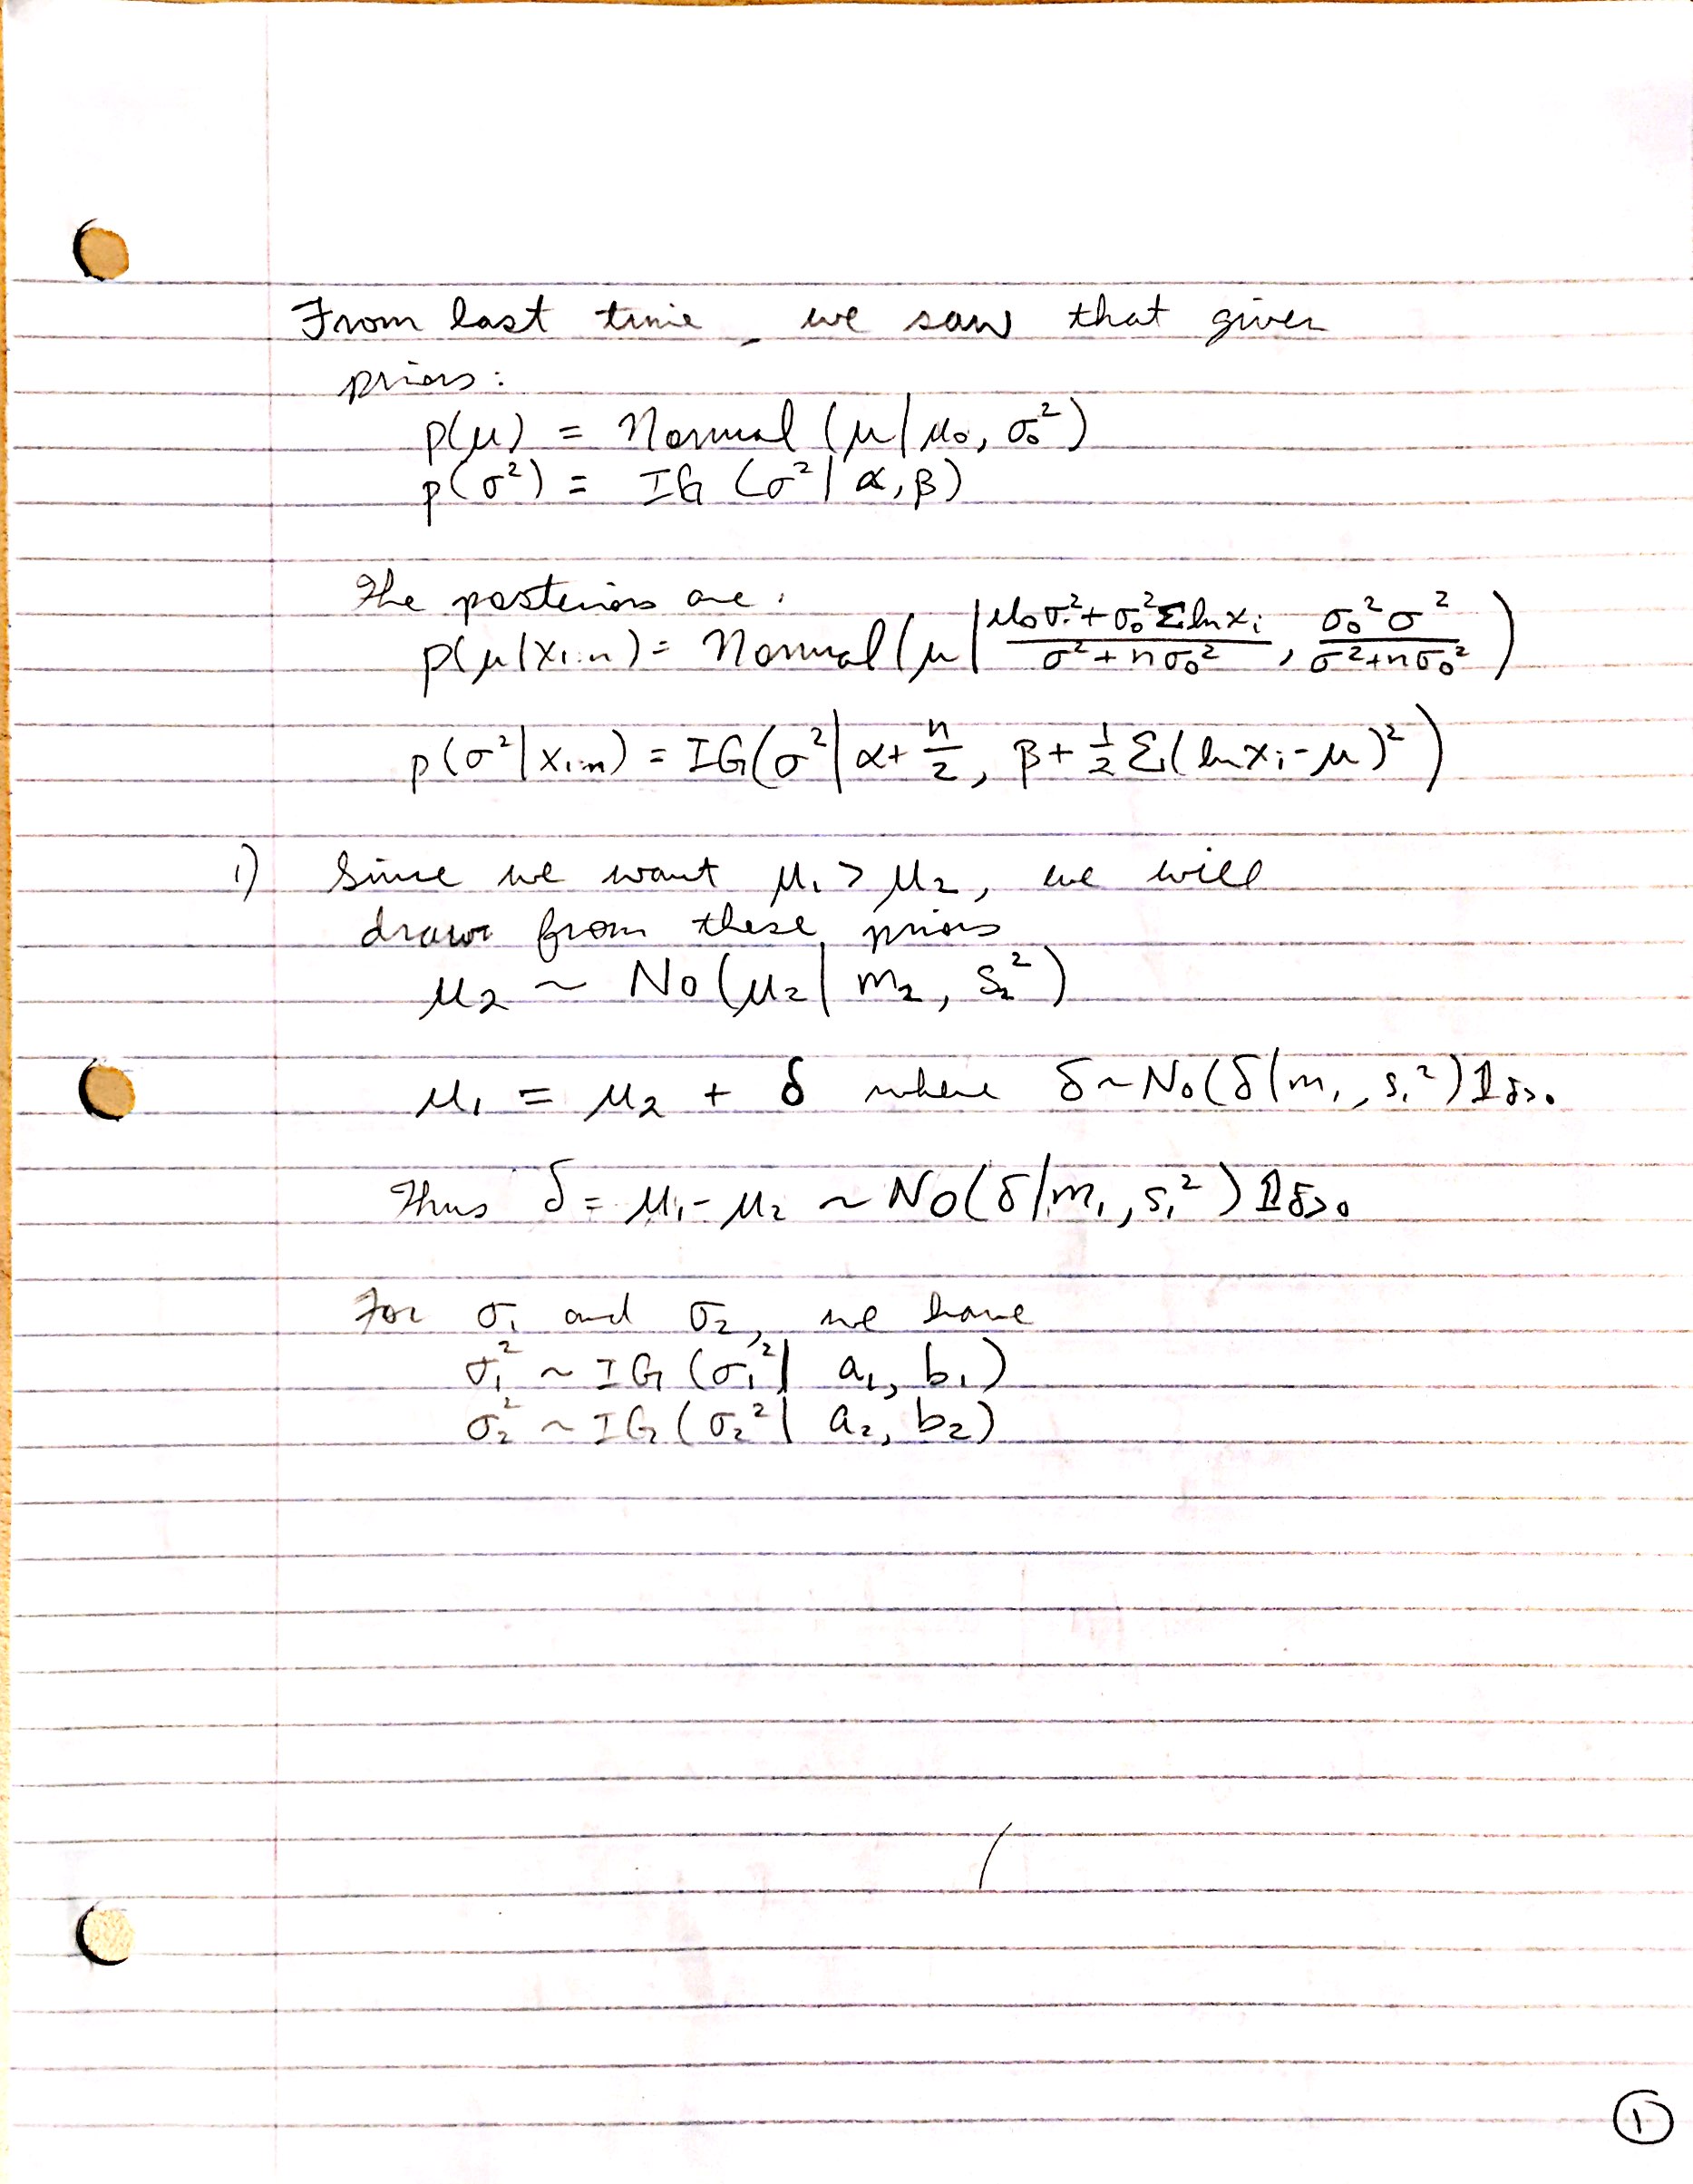 From last time, we saw that given
priors:
p(μ) = Normal (μ | μ₀, σ₀²)
p(σ²) = IG (σ² | α, β)
The posteriors are:
p(μ|x₁:ₙ) = Normal (μ | (μ₀σ² + σ₀² Σ ln xᵢ)/(σ² + nσ₀²), (σ₀²σ²)/(σ² + nσ₀²))
p(σ²|x₁:ₙ) = IG(σ² | α + n/2, β + 1/2 Σ(ln xᵢ - μ)²)
1) Since we want μ₁ > μ₂, we will
draw from these priors
μ₂ ~ No(μ₂ | m₂, s₂²)
μ₁ = μ₂ + δ where δ ~ No(δ | m₁, s₁²) 𝟙δ>0
Thus δ = μ₁ - μ₂ ~ No(δ | m₁, s₁²) 𝟙δ>0
For σ₁ and σ₂, we have
σ₁² ~ IG (σ₁² | a₁, b₁)
σ₂² ~ IG (σ₂² | a₂, b₂)
1